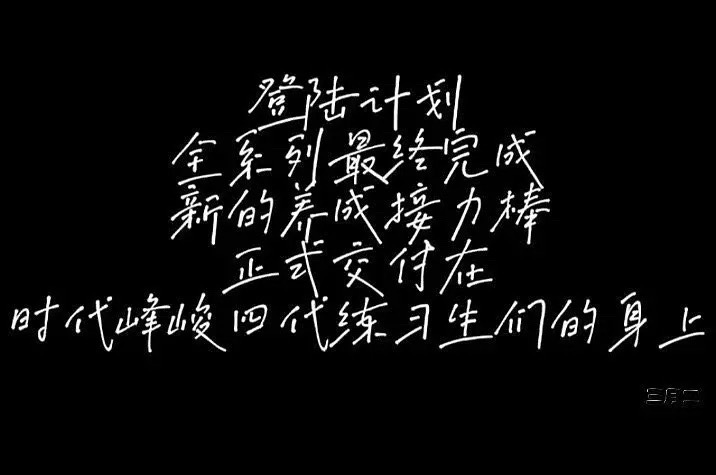 登陆计划
全系列最终完成
新的养成接力棒
正式交付在
时代峰峻四代练习生们的身上
三月二